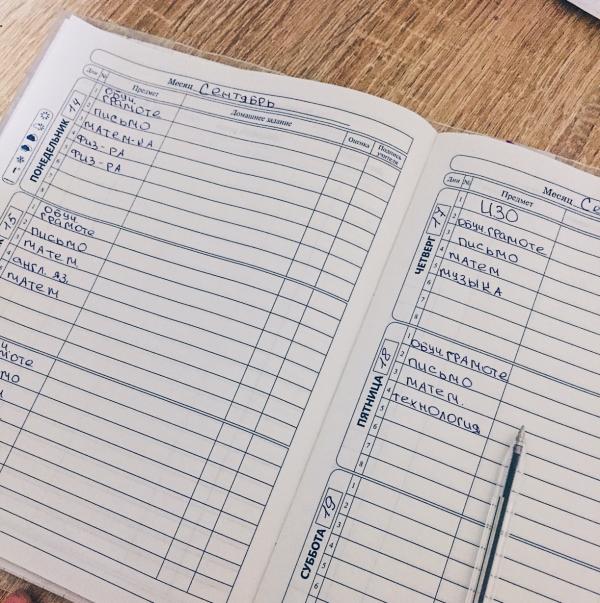 Месяц Сентябрь
Дни № Предмет Домашнее задание Оценка Подпись учителя
ПОНЕДЕЛЬНИК 14
1 Обуч.
грамоте
2 письмо
3 матем-ка
4 физ-ра
5 физ-ра
6
7
8
15
Обуч.
грамоте
письмо
матем
англ. яз.
матем
Месяц
Дни № Предмет
ЧЕТВЕРГ 17
1 ИЗО
2 Обуч грамоте
3 письмо
4 матем
5 музыка
6
7
8
ПЯТНИЦА 18
1 Обуч грамоте
2 письмо
3 матем.
4 технология
5
6
7
8
СУББОТА 19
1
2
3
4
5
6